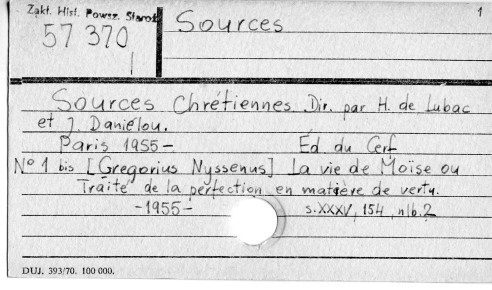 Zakł. Hist. Powsz. Staroż.
57 370
Sources
1
Sources Chrétiennes Dir. par H. de Lubac
et J. Daniélou.
Paris 1955- Ed. du Cerf
Nº 1 bis [Gregorius Nyssenus] La vie de Moïse ou
Traité de la perfection en matière de vertu.
-1955- s.XXXV, 154, nlb.2
DUJ. 393/70. 100 000.